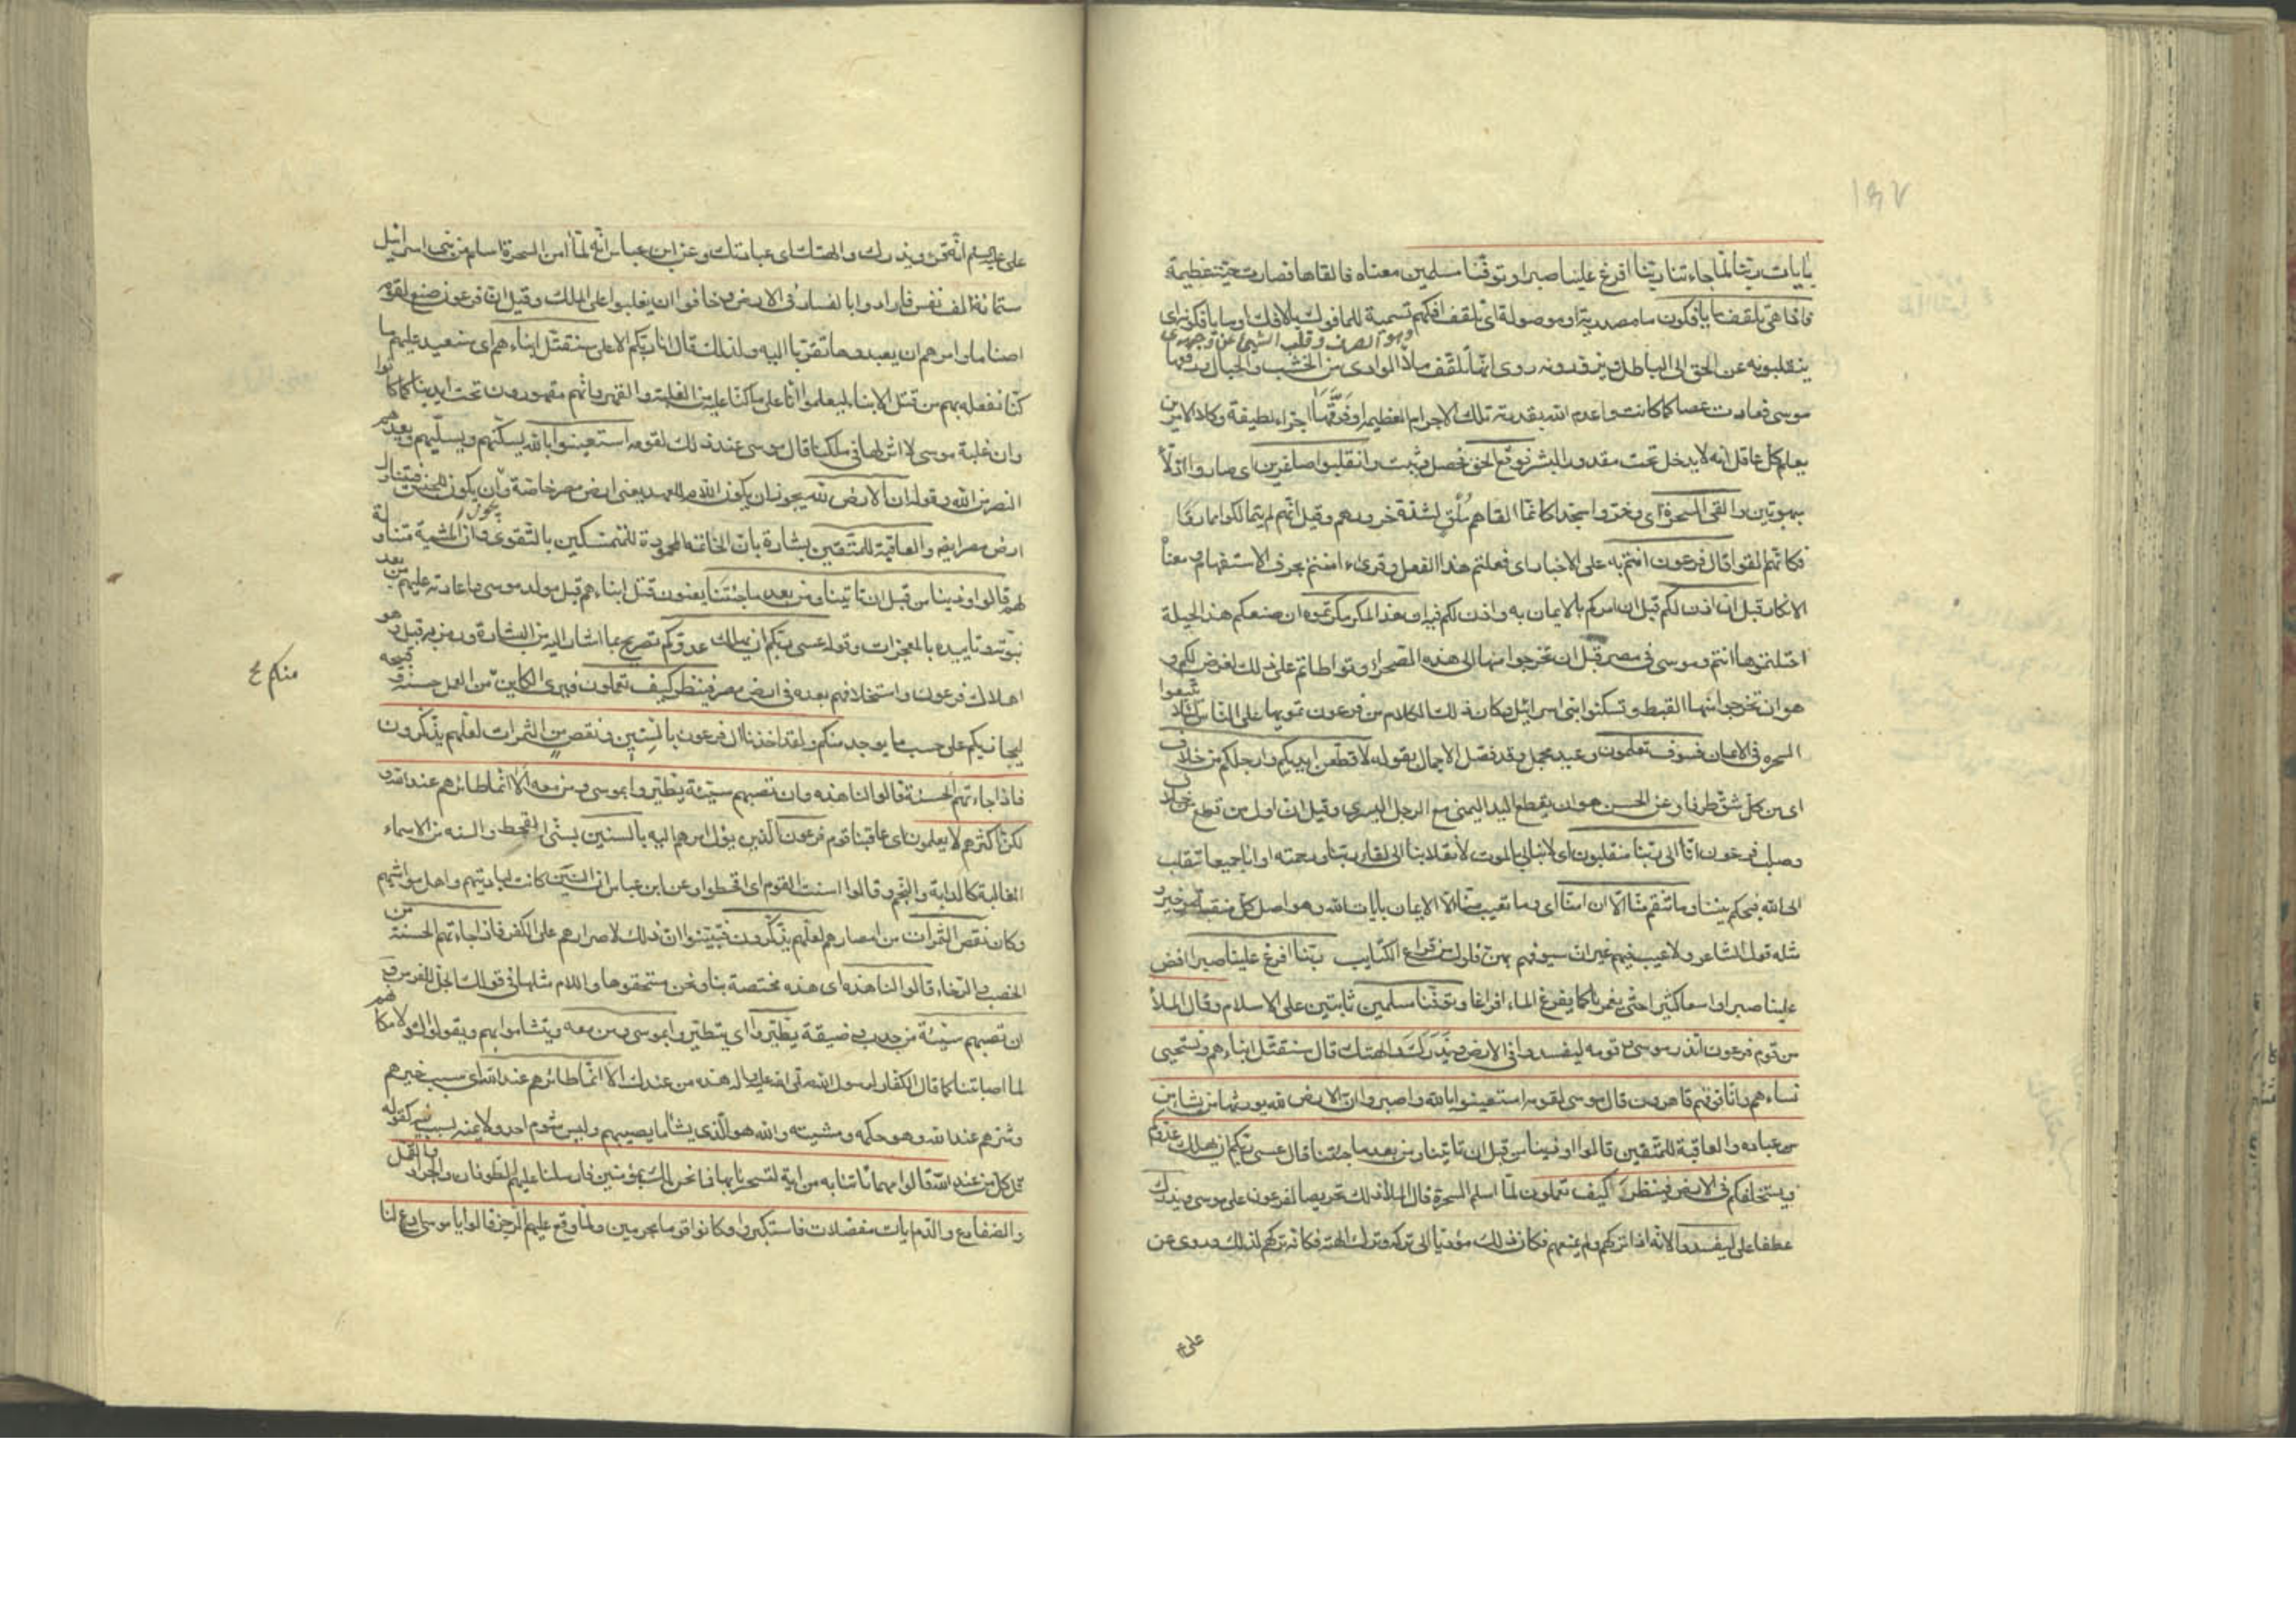 ١٤٧
بايات ربنا لما جاءتنا ربنا افرغ علينا صبرا وتوفنا مسلمين معناه فالقاها فصارت حية عظيمة
فاذا هي تلقف ما يافكون ما مصدرية او موصولة اي تلقف افكهم تسمية للمافوك بالافك او ما يافكونه اي
وهو الصرف وقلب الشيء عن وجهه
يقلبونه عن الحق الى الباطل ويزورونه روى انها لما تلقف ملأ الوادي من الخشب والحبال رفعها
موسى فعادت عصا كما كانت واعدم الله بقدرته تلك الاجرام العظيمة او فرقها اجزاء لطيفة وكان الامر من
يعلم كل عاقل انه لا يدخل تحت مقدور البشر فوقع الحق فحصل وثبت وانقلبوا صاغرين اي صاروا اذلاء
مبهوتين والقي السحرة اي وخروا سجدا كانما القاهم ملق لشدة خرورهم وقيل انهم لم يتمالكوا مما راوا
فكانهم القوا قال فرعون امنتم به على الاخبار اي فعلتم هذا الفعل وقرىء اامنتم بحرف الاستفهام ومعناه
الانكار قبل ان اذن لكم قبل ان امركم بالايمان به واذن لكم فيه ان هذا لمكر مكرتموه ان صنعكم هذا لحيلة
احتلتموها انتم وموسى في مصر قبل ان تخرجوا منها الى هذه الصحراء وتواطاتم على ذلك لغرض لكم و
هو ان تخرجوا منها القبط وتسكنوا بني اسرائيل وكان ذلك الكلام من فرعون تمويها على الناس لئلا يتبعوا
السحرة في الايمان فسوف تعلمون وعيد مجمل وقد فصل الاجمال بقوله لاقطعن ايديكم وارجلكم من خلاف
اي من كل شق طرفا وعن الحسن هو ان يقطع اليد اليمنى مع الرجل اليسرى وقيل ان اول من قطع من خلاف
وصلب فرعون انا الى ربنا منقلبون اي لا نبالي بالموت لانقلابنا الى لقاء ربنا ورحمته او انا جميعا ننقلب
الى الله فيحكم بيننا وما تنقم منا الا ان امنا اي وما تعيب منا الا الايمان بايات الله وهو اصل كل منقبة وخير و
مثله قول الشاعر ولا عيب فيهم غير ان سيوفهم بهن فلول من قراع الكتايب ربنا افرغ علينا صبرا افض
علينا صبرا واسعا كثيرا حتى يغمرنا كما يفرغ الماء افراغا وتوفنا مسلمين ثابتين على الاسلام وقال الملأ
من قوم فرعون اتذر موسى وقومه ليفسدوا في الارض ويذرك والهتك قال سنقتل ابناءهم ونستحيي
نساءهم وانا فوقهم قاهرون قال موسى لقومه استعينوا بالله واصبروا ان الارض لله يورثها من يشاء من
من عباده والعاقبة للمتقين قالوا اوذينا من قبل ان تاتينا ومن بعد ما جئتنا قال عسى ربكم ان يهلك عدوكم
ويستخلفكم في الارض فينظر كيف تعملون لما اسلم السحرة قال الملأ ذلك تحريصا لفرعون على موسى ويذرك
عطفا على ليفسدوا لانه اذا تركهم ولم يمنعهم فكان ذلك مؤديا الى تركه وترك الهته فكانه تركهم لذلك وروى عن
على ع
على عليه السلم انه قرء ويذرك والهتك اي عبادتك وعن ابن عباس انه لما امن السحرة اسلم من بني اسرائيل
ستمائة الف نفس فارادوا بالفساد في الارض وخافوا ان يغلبوا على الملك وقيل ان فرعون صنع لقومه
اصناما وامرهم ان يعبدوها تقربا اليه ولذلك قال انا ربكم الاعلى سنقتل ابناءهم اي سنعيد عليهم ما
كنا نفعله بهم من قتل الابناء ليعلموا انا على ما كنا عليه من الغلبة والقهر وانهم مقهورون تحت ايدينا كما كانوا
وان غلبة موسى لا اثر لها في ملكنا قال موسى عند ذلك لقومه استعينوا بالله يسكنهم ويسليهم ويعدهم
النصر من الله وقوله ان الارض لله يجوز ان يكون اللام للعهد يعني ارض مصر خاصة وان يكون للجنس فيتناول
ارض مصر ايضا والعاقبة للمتقين بشارة بان الخاتمة المحمودة للمتمسكين بالتقوى وان المشية متناولة
لهم قالوا اوذينا من قبل ان تاتينا ومن بعد ما جئتنا يعنون قتل ابناءهم قبل مولد موسى واعادته عليهم من بعد
نبوته وتاييده بالمعجزات وقوله عسى ربكم ان يهلك عدوكم تصريح بما اشار اليه من البشارة ورمز به قبل وهو
اهلاك فرعون واستخلافهم بعده في ارض مصر فينظر كيف تعملون فيرى الكاين من العمل حسنه وقبيحه
منكم ع
ليجازيكم على حسب ما يوجد منكم ولقد اخذنا ال فرعون بالسنين ونقص من الثمرات لعلهم يذكرون
فاذا جاءتهم الحسنة قالوا لنا هذه وان تصبهم سيئة يطيروا بموسى ومن معه الا انما طائرهم عند الله و
لكن اكثرهم لا يعلمون اي عاقبنا قوم فرعون الذين يؤل امرهم اليه بالسنين بسني القحط والسنة من الاسماء
الغالبة كالدابة والنجم وقالوا اسنت القوم اي اقحطوا وعن ابن عباس ان السنين كانت لباديتهم واهل مواشيهم
وكان نقص الثمرات من امصارهم لعلهم يذكرون فيتبينوا ان ذلك لاصرارهم على الكفر فاذا جاءتهم الحسنة من
الخصب والرخاء قالوا لنا هذه اي هذه مختصة بنا ونحن مستحقوها واللام مثلها في قولك الجل للفرس و
ان تصبهم سيئة من جدب وضيقة يطيروا اي يتطيروا بموسى ومن معه ويتشاموا بهم ويقولوا لولا مكانهم
لما اصابتنا كما قال الكفار لرسول الله صلى الله عليه واله هذه من عندك الا انما طائرهم عند الله اي سبب خيرهم
وشرهم عند الله وهو حكمه ومشيته والله هو الذي يشاء ما يصيبهم وليس شوم احد ولا يمنه لسبب فيه كقوله
قل كل من عند الله قالوا مهما تاتنا به من اية لتسحرنا بها فما نحن لك بمؤمنين فارسلنا عليهم الطوفان والجراد والقمل
والضفادع والدم ايات مفصلات فاستكبروا وكانوا قوما مجرمين ولما وقع عليهم الرجز قالوا يا موسى ادع لنا